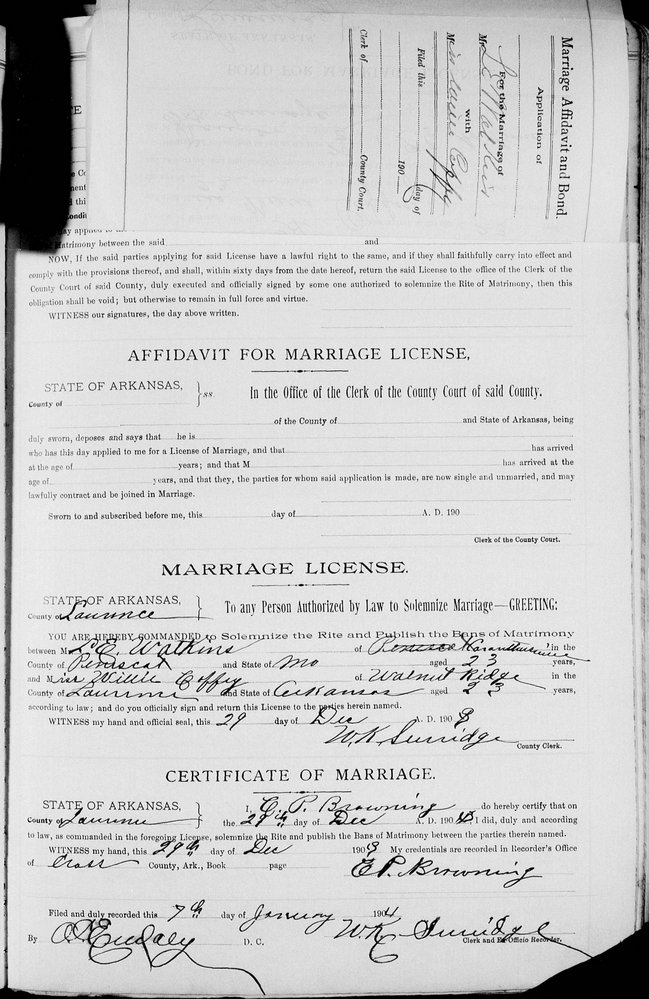 Marriage Affidavit and Bond.
Application of
For the Marriage of
Mr L E Watkins
with
Miss Willie Coffey
Filed this day of
190
Clerk of County Court.
Matrimony between the said and
NOW, If the said parties applying for said License have a lawful right to the same, and if they shall faithfully carry into effect and
comply with the provisions thereof, and shall, within sixty days from the date hereof, return the said License to the office of the Clerk of the
County Court of said County, duly executed and officially signed by some one authorized to solemnize the Rite of Matrimony, then this
obligation shall be void; but otherwise to remain in full force and virtue.
WITNESS our signatures, the day above written.
AFFIDAVIT FOR MARRIAGE LICENSE,
STATE OF ARKANSAS,
County of
ss In the Office of the Clerk of the County Court of said County.
of the County of and State of Arkansas, being
duly sworn, deposes and says that he is
who has this day applied to me for a License of Marriage, and that has arrived
at the age of years; and that M has arrived at the
age of years, and that they, the parties for whom said application is made, are now single and unmarried, and may
lawfully contract and be joined in Marriage.
Sworn to and subscribed before me, this day of A. D. 190
Clerk of the County Court.
MARRIAGE LICENSE.
STATE OF ARKANSAS,
County of Lawrence
To any Person Authorized by Law to Solemnize Marriage—GREETING:
YOU ARE HEREBY COMMANDED to Solemnize the Rite and Publish the Bans of Matrimony
between Mr L. E. Watkins of in the
County of Pemiscat and State of Mo aged 23 years,
and Miss Willie Coffey of Walnut Ridge in the
County of Lawrence and State of Arkansas aged 23 years,
according to law; and do you officially sign and return this License to the parties herein named.
WITNESS my hand and official seal, this 29 day of Dec A. D. 1903
W. K. Surridge County Clerk.
CERTIFICATE OF MARRIAGE.
STATE OF ARKANSAS,
County of Lawrence
I, E. P. Browning do hereby certify that on
the 29th day of Dec A. D. 1903 I did, duly and according
to law, as commanded in the foregoing License, solemnize the Rite and publish the Bans of Matrimony between the parties therein named.
WITNESS my hand, this 29th day of Dec 1903 My credentials are recorded in Recorder's Office
of Cross County, Ark., Book page
E P. Browning
Filed and duly recorded this 7th day of January 1904
By D. C. W. K. Surridge
Clerk and Ex-Officio Recorder.